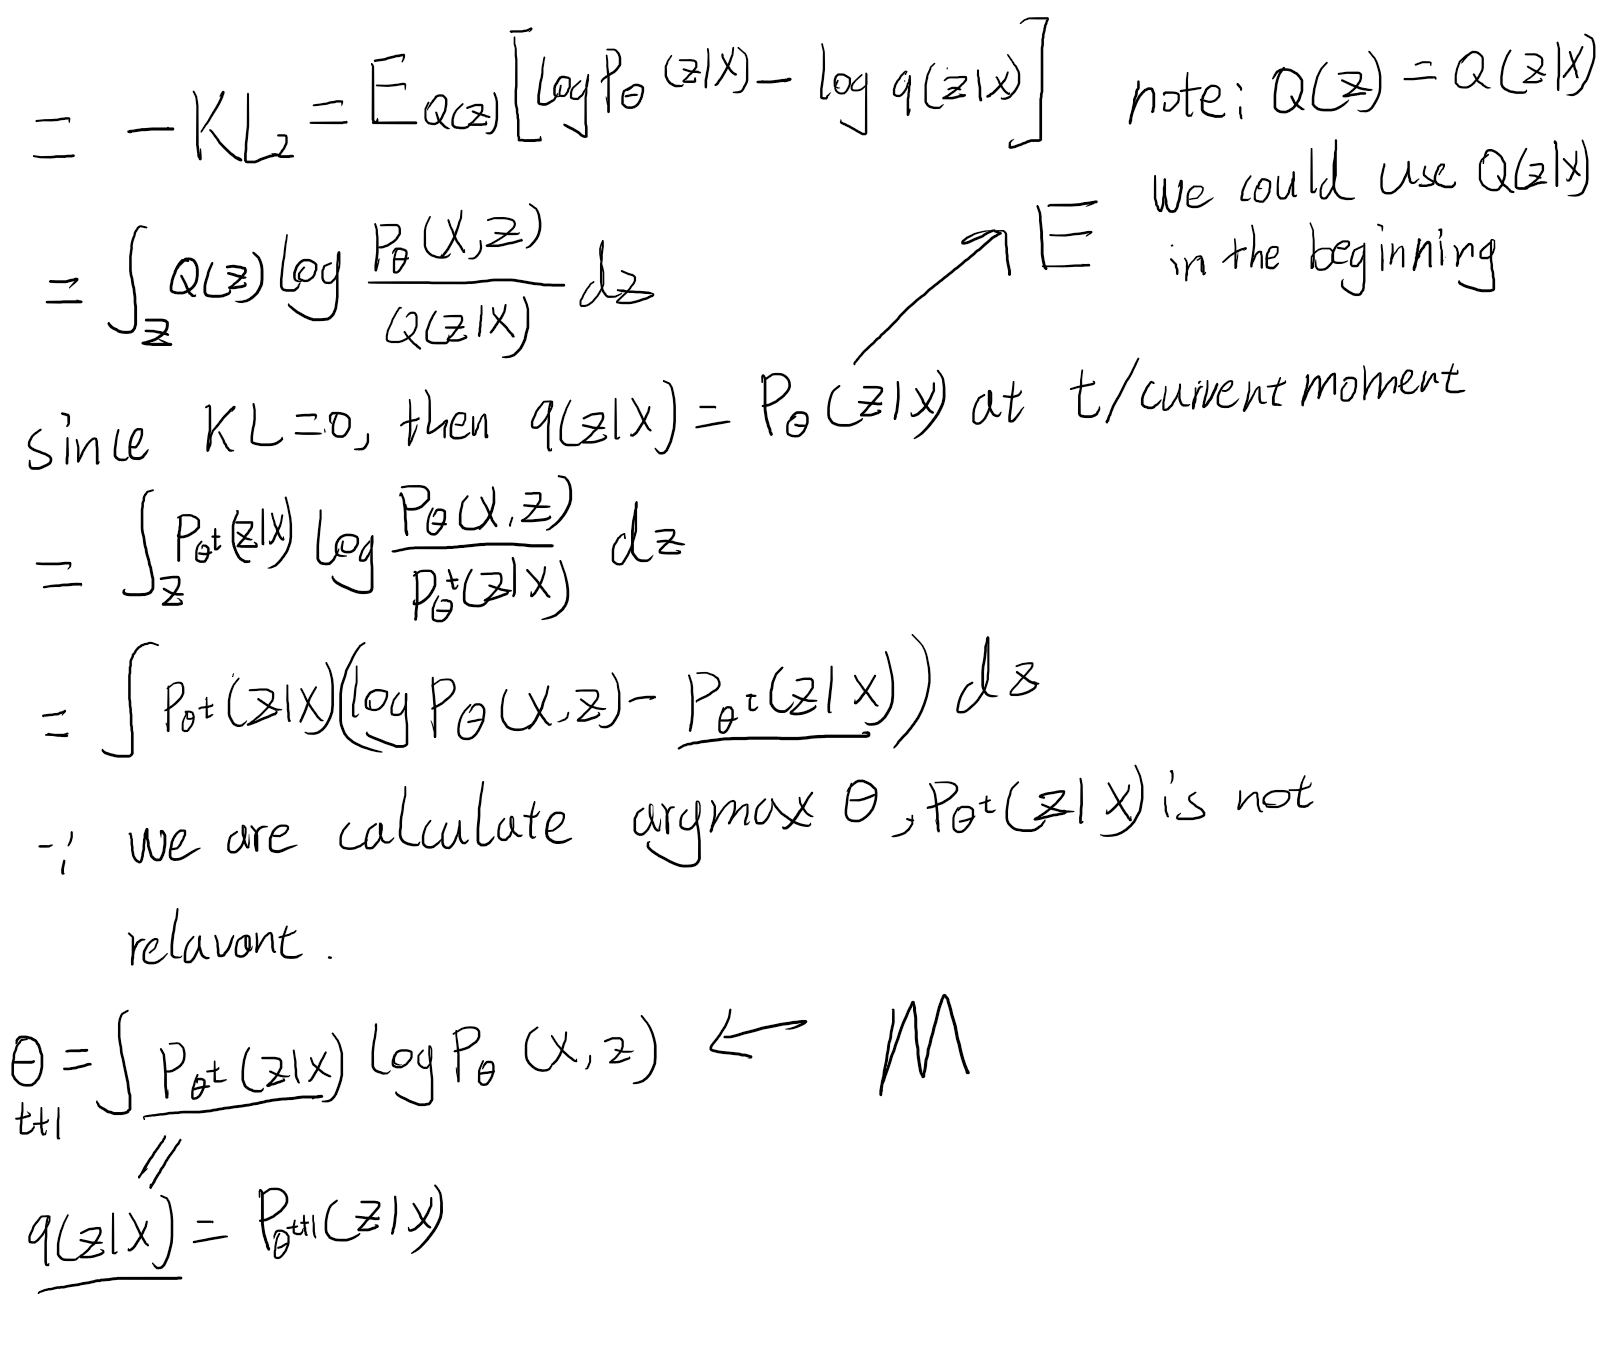 = -KL₂ = E_{Q(z)} [log P_θ (z|X) - log q(z|x)] note: Q(z) = Q(z|X)
we could use Q(z|X)
in the beginning
= ∫_z Q(z) log P_θ(X,z) / Q(z|X) dz ↗ E
since KL=0, then q(z|X) = P_θ (z|X) at t/current moment
= ∫_z P_θt(z|X) log P_θ(X,z) / P_θ^t(z|X) dz
= ∫ P_θt (z|X)(log P_θ (X,z) - P_θt (z|X)) dz
∵ we are calculate argmax θ, P_θt (z|X) is not
relavant.
θ_{t+1} = ∫ P_θt (z|X) log P_θ (X,z) ← M
//
q(z|X) = P_θt+1 (z|X)